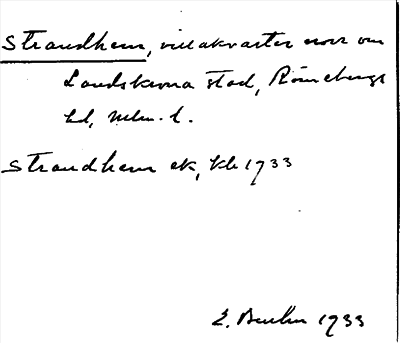 Strandhem, villakvarter norr om
Landskrona stad, Rönnebergs
hd, Mlm. l.
Strandhem ek, kbl 1933
E. 1933